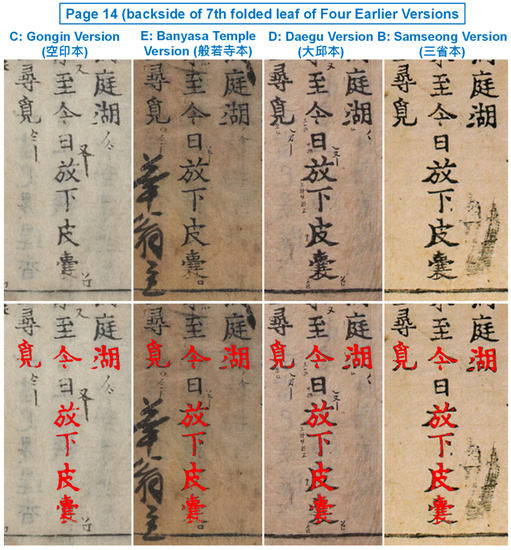 Page 14 (backside of 7th folded leaf of Four Earlier Versions
C: Gongin Version
(空印本)
E: Banyasa Temple
Version (般若寺本)
D: Daegu Version
(大邱本)
B: Samseong Version
(三省本)
庭湖
至今日放下皮囊
尋覓
庭湖
至今日放下皮囊
尋覓
庭湖
至今日放下皮囊
尋覓
庭湖
至今日放下皮囊
尋覓
庭湖
至今日放下皮囊
尋覓
庭湖
至今日放下皮囊
尋覓
庭湖
至今日放下皮囊
尋覓
庭湖
至今日放下皮囊
尋覓